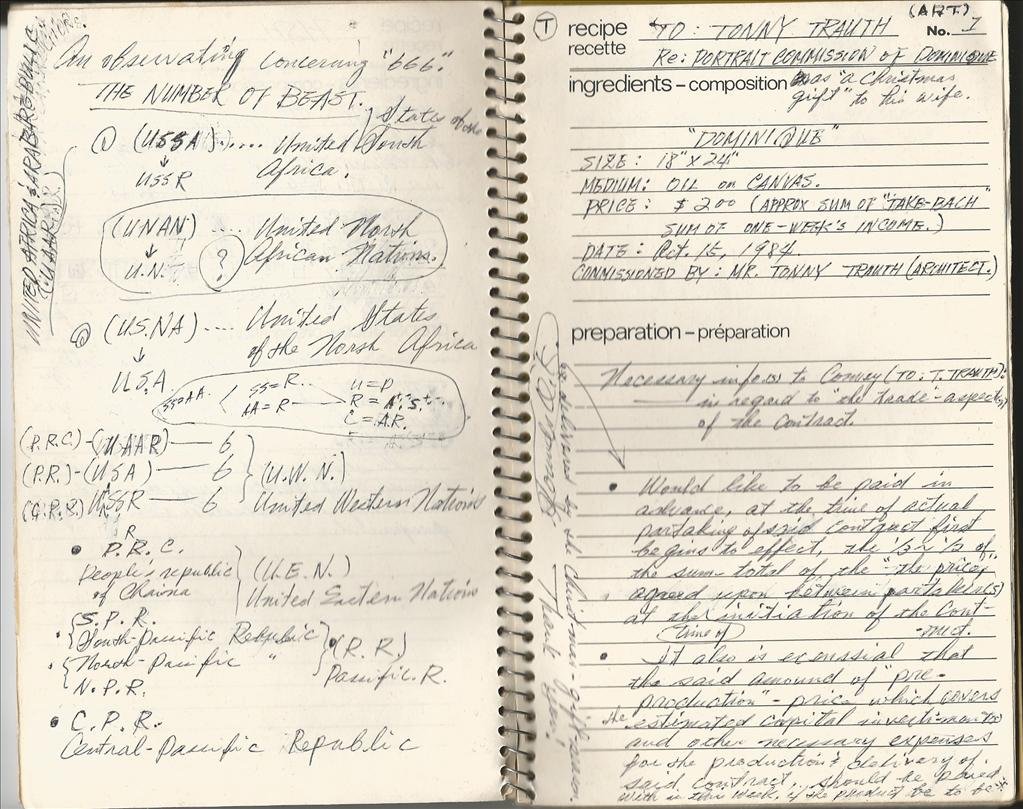 An observating concerning "666."
THE NUMBER OF BEAST.
States of the
① (USSA)..... United South
↓ Africa.
USSR
(UNAN) .... United North
↓ African Nations.
U.N. ?
② (U.S.NA) .... United States
↓ of the North Africa
U.S.A.
SS=R U=P
AA=R R=A.S.
C=A.R.
(P.R.C)-(UAAR) — 6
(P.R)-(USA) — 6 (U.W.N.)
USSR — 6 United Western Nations
R
• P.R.C.
People's republic (U.E.N.)
of Chaina United Eastern Nations
S.P.R.
• South-Pacific Republic (R.R.)
• North-Pacific " Passific.R.
N.P.R.
• C.P.R.
Central-Pacific Republic
UNITED AFRICA & ARAB REPUBLIC
(UAAR)
(ART)
T recipe TO: TONNY TRAUTH No. 1
recette Re: PORTRAIT COMMISSION OF DOMINIQUE
ingredients – composition as "a Christmas
gift" to his wife.
"DOMINIQUE"
SIZE: 18" X 24"
MEDIUM: OIL on CANVAS.
PRICE: $200 (APPROX SUM OF "TAKE-BACH"
SUM OF ONE-WEEK'S INCOME.)
DATE: Oct. 15, 1984.
COMMISSIONED BY: MR. TONNY TRAUTH (ARCHITECT.)
preparation – préparation
Necessary info(s) to Convey (TO: T. TRAUTH):
in regard to "the trade-aspect(s)
of the Contract.
• Would like to be paid in
advance, at the time of actual
partaking of said contract first
begins to effect, the 1/3 ~ 1/2 of
the sum-total of the "the price
agreed upon between partaker(s)
at the initiation of the Cont-
(time of) -ract.
• It also is ecenssial that
the said amount of "pre-
production"-price which covers
the estimated capital investment(s)
and other necessary expenses
for the production & delivery of
said contract, should be paied
with in this week, if the product be to be
delivered by the Christmas-gift season.
Thank you.